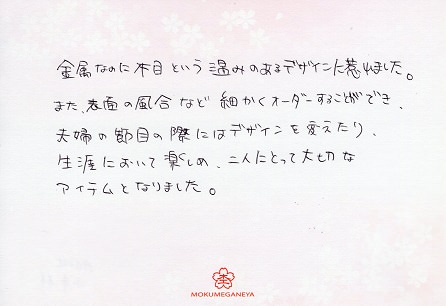 金属なのに木目という温みのあるデザインに惹れました。
また、表面の風合など細かくオーダーすることができ、
夫婦の節目の際にはデザインを変えたり、
生涯において楽しめ、二人にとって大切な
アイテムとなりました。
MOKUMEGANEYA